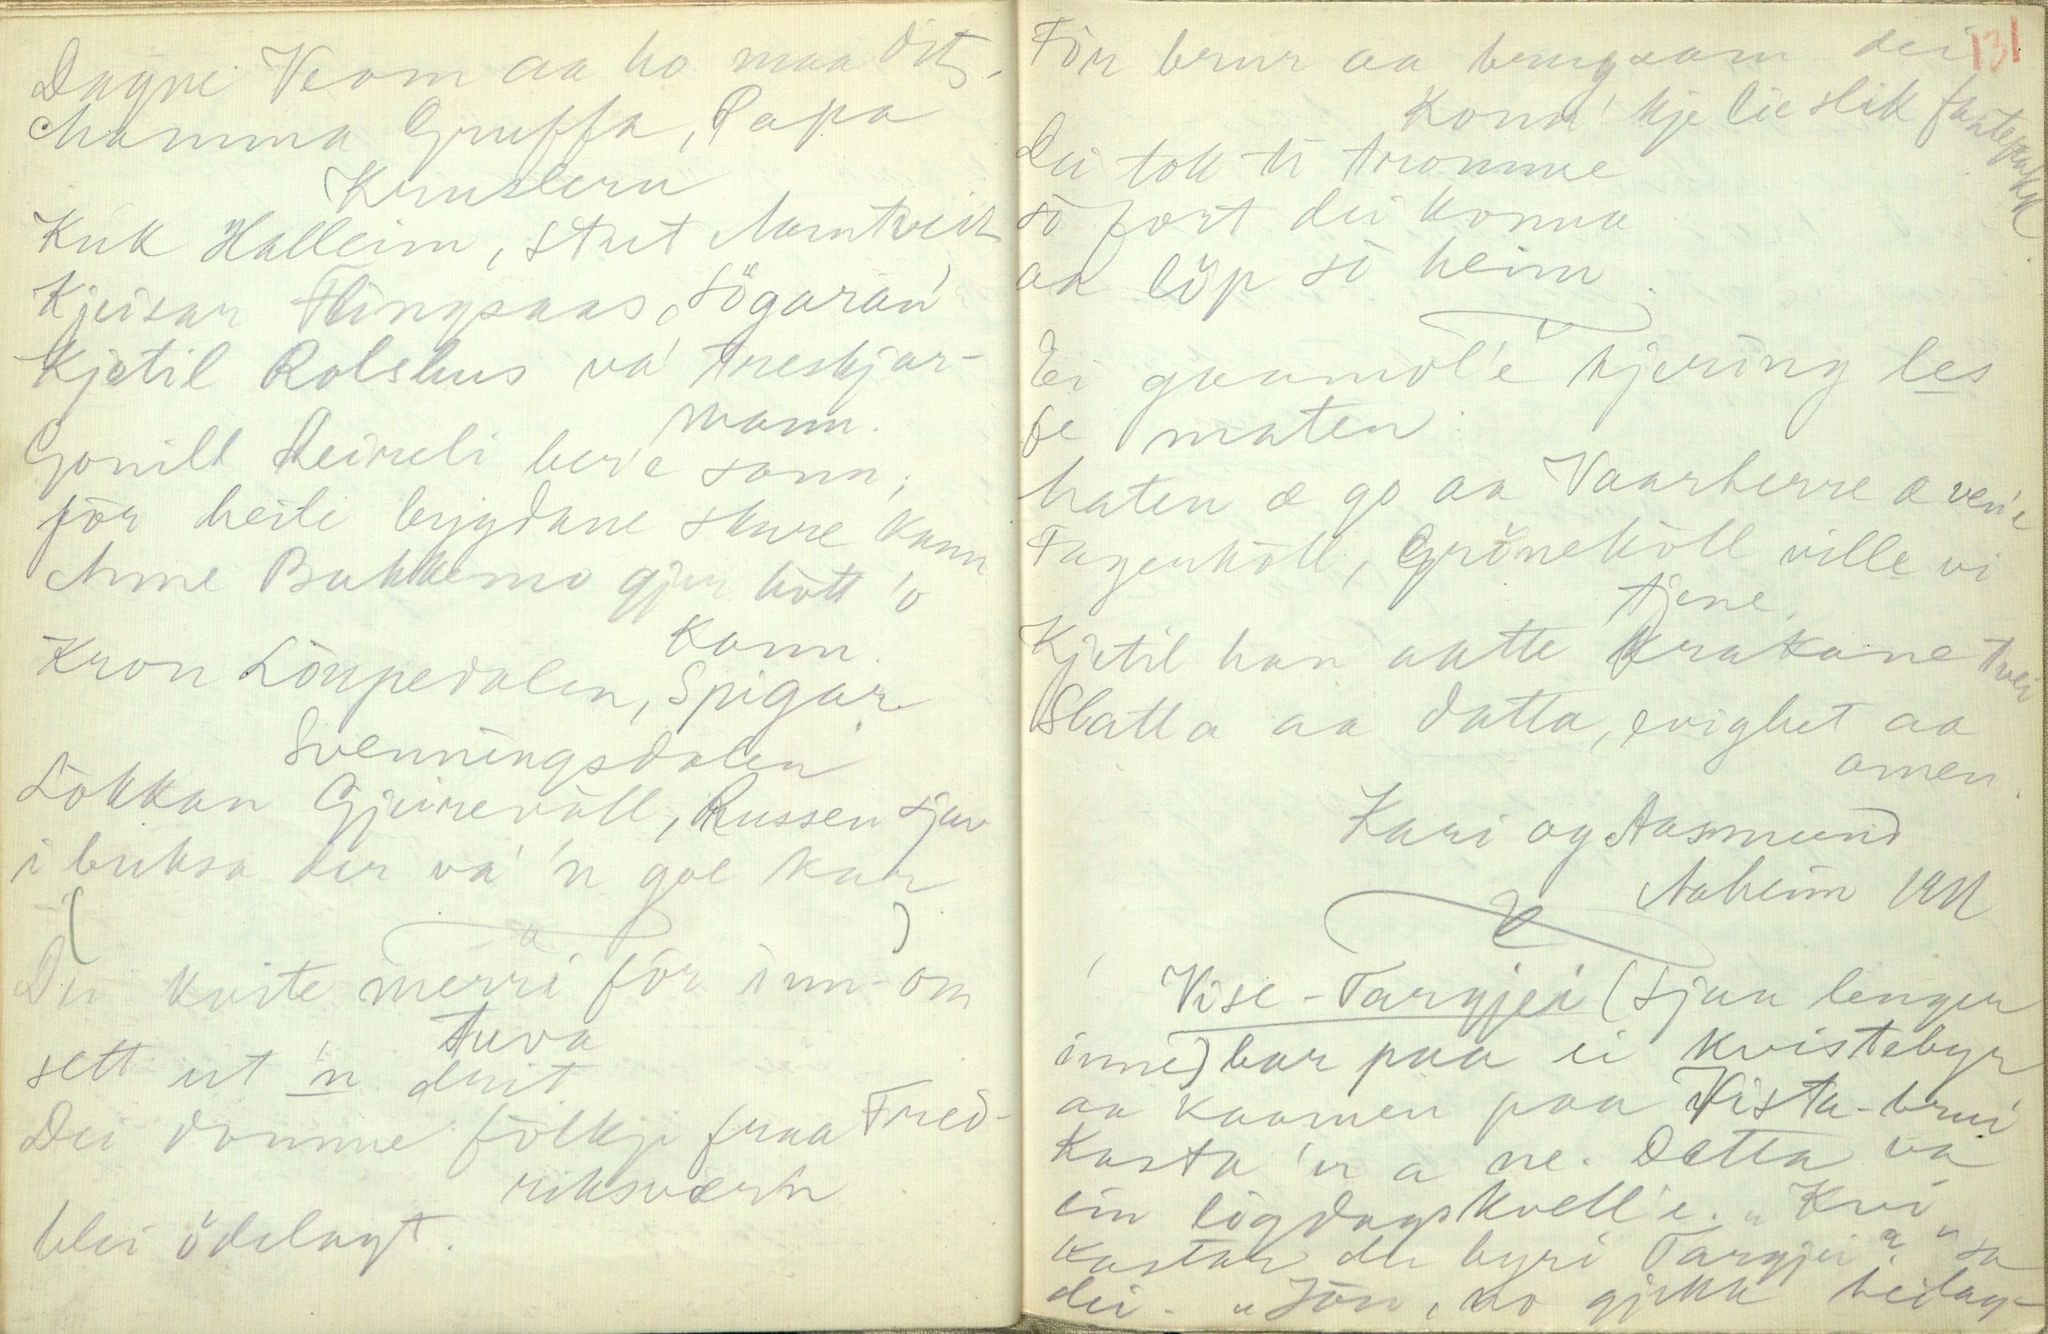 Dagne Veom aa ho maa dit,
Mamma Gruffa, Papa
Kruslern
Kuk Halleim, Strut Aamtveit
Kjeisar Flingsaas, Sögaran
Kjetil Rolshus va' treskjar-
mann.
Gonill Heireli ber'e sonn,
för heile bygdane skure kann
Anne Bakkemo gjer hött 'o
kann.
Kron Löupedalen, Spigar
Svenningsdalen
Lökkan Gjeirevöll, Russen sjav
i buksa der va' 'n goe kar
Dei kviste merri för inn-om
tuva
sett ut 'n drit
Dei domme fölkji fraa Fred-
riksværk
blei ödelagt.
131
För brur aa brugaam dei
Konn' kje lie slik fantepakk
Dei tok ti tromme
so fort dei konna
aa löp so heim.
Ei gaamol'e kjering les
fe maten:
Maten æ go aa Vaarherre æ ven'e
Fagerköll, Gröneköll ville vi
tjene,
Kjetil han aatte krakane trei
Slatta aa datta, evighet aa
amen.
Kari og Aasmund
Aaheim 1911
Vise-Targjei (sjaa lenger
inne) bar paa ei kvistebyr
aa kaamen paa Vista-brui
kasta 'n a ne. Detta va
ein lögdagskvell'e. "Kvi
kastar du byri Targjei?" sa
dei. "Jön, no gjekk heilag-